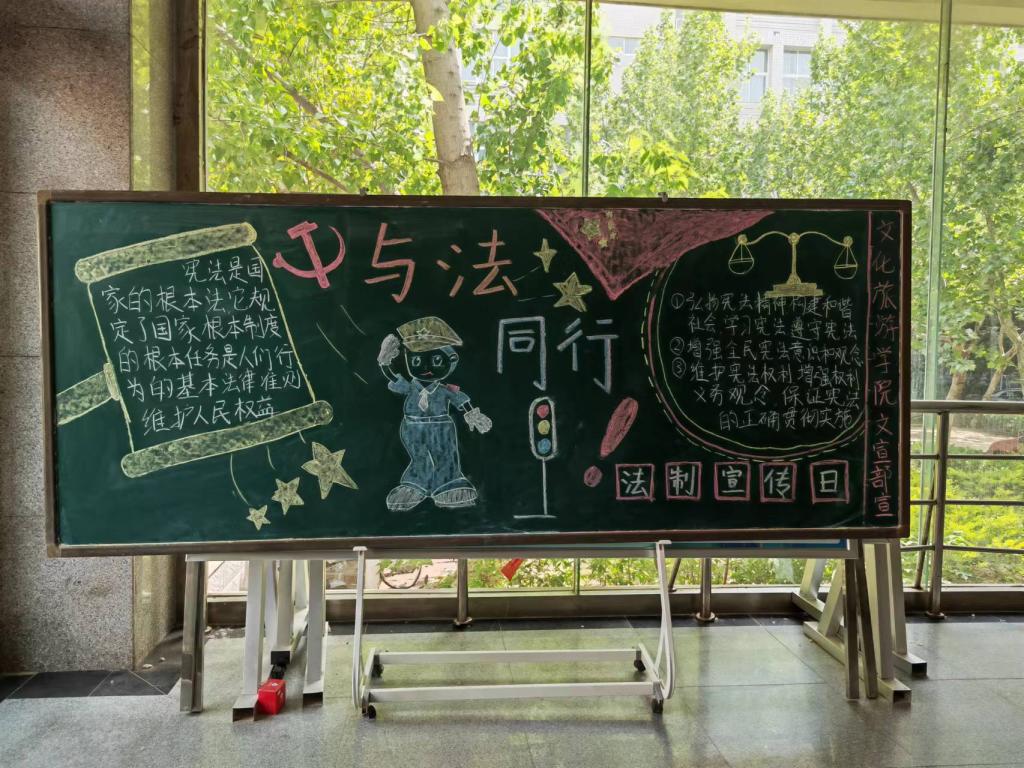 宪法是国
家的根本法它规
定了国家根本制度
的根本任务是人们行
为的基本法律准则
维护人民权益
与法
同行
①弘扬宪法精神构建和谐
社会学习宪法遵守宪法
②增强全民宪法意识和观念
③维护宪法权利增强权利
义务观念保证宪法
的正确贯彻实施
法制宣传日
文化旅游学院文宣部宣